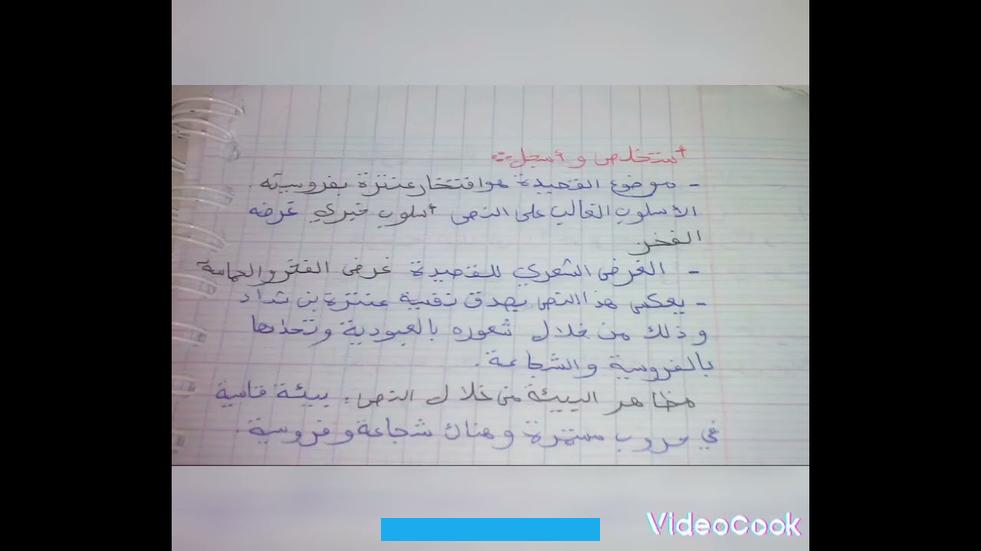 أستخلص و أسجل:
- موضوع القصيدة هو افتخار عنترة بفروسيته.
الأسلوب الغالب على النص أسلوب خبري غرضه
الفخر
- الغرض الشعري للقصيدة غرض الفخر والحماسة
- يعكس هذا النص بصدق نفسية عنترة بن شداد
وذلك من خلال شعوره بالعبودية وتحدها
بالفروسية والشجاعة.
مظاهر البيئة من خلال النص: بيئة قاسية
في حروب مستمرة وهناك شجاعة و فروسية.
VideoCook